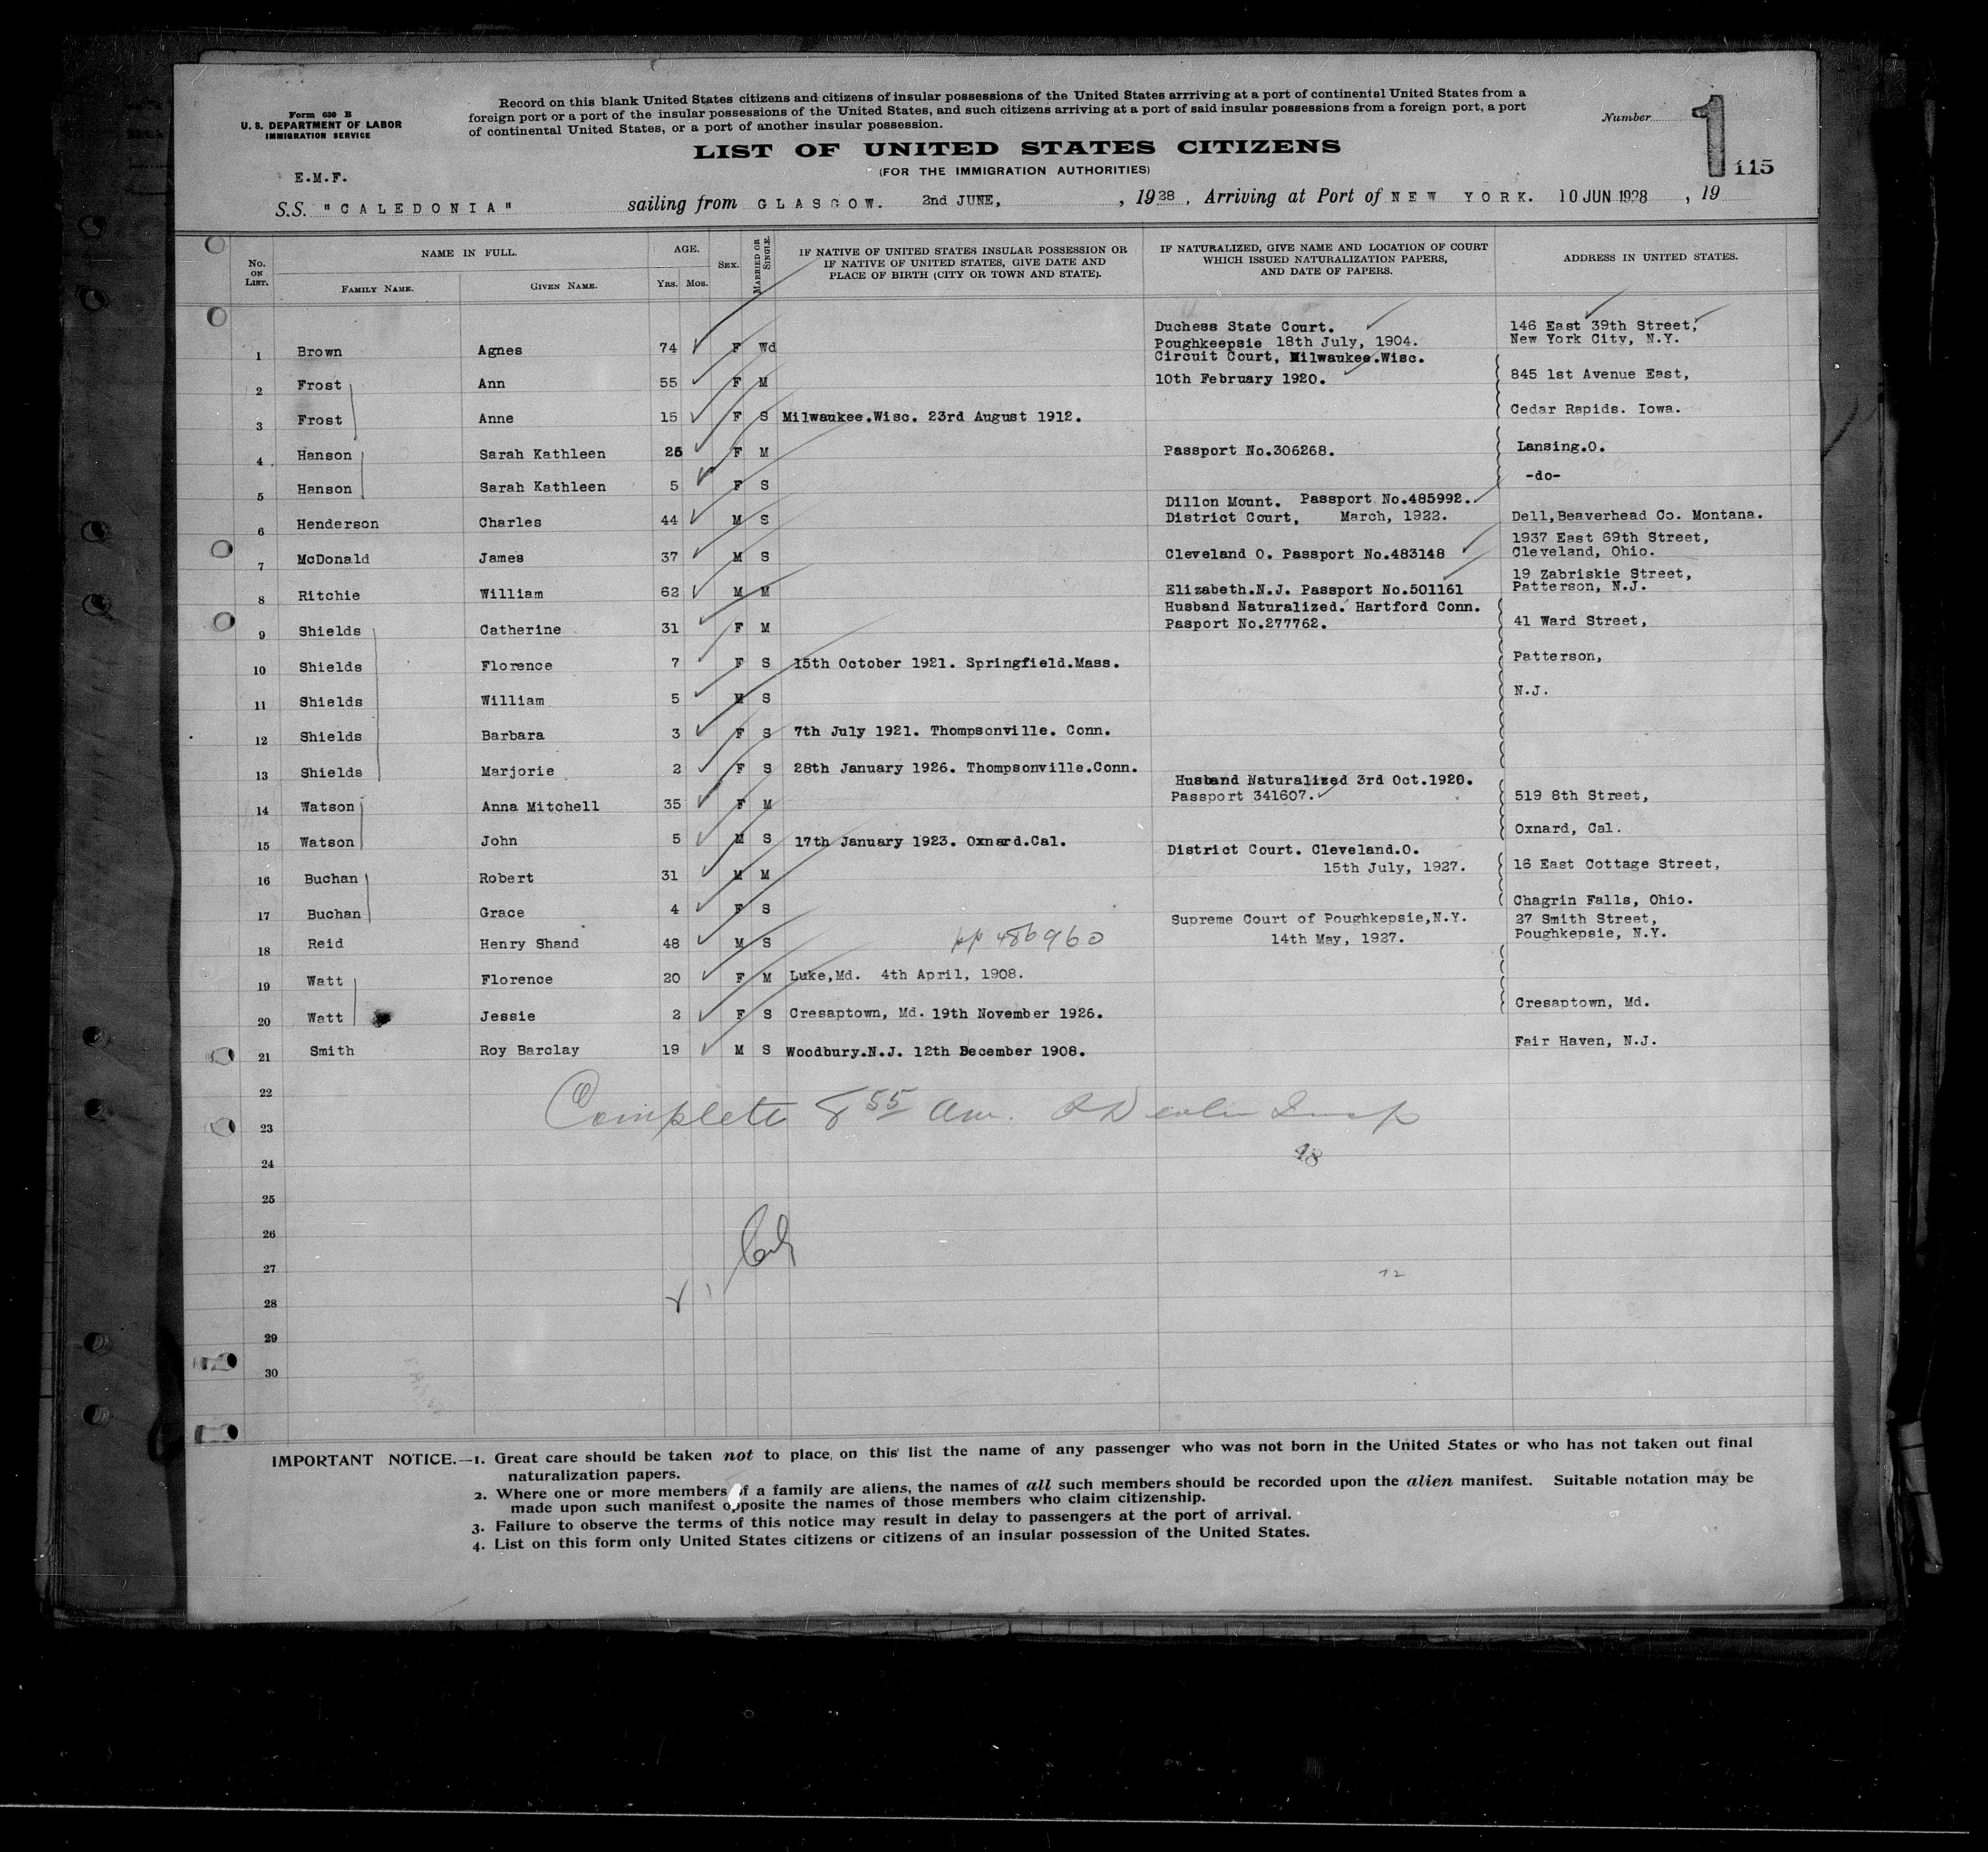 Form 630 B
U. S. DEPARTMENT OF LABOR
IMMIGRATION SERVICE
Record on this blank United States citizens and citizens of insular possessions of the United States arrriving at a port of continental United States from a
foreign port or a port of the insular possessions of the United States, and such citizens arriving at a port of said insular possessions from a foreign port, a port
of continental United States, or a port of another insular possession.
Number 1 115
LIST OF UNITED STATES CITIZENS
(FOR THE IMMIGRATION AUTHORITIES)
E.M.F.
S.S. "CALEDONIA" sailing from GLASGOW. 2nd JUNE, , 1928 , Arriving at Port of NEW YORK. 10 JUN 1928 , 19
No. ON LIST. NAME IN FULL. FAMILY NAME. GIVEN NAME. AGE. YRS. MOS. SEX. MARRIED OR SINGLE. IF NATIVE OF UNITED STATES INSULAR POSSESSION OR IF NATIVE OF UNITED STATES, GIVE DATE AND PLACE OF BIRTH (CITY OR TOWN AND STATE). IF NATURALIZED, GIVE NAME AND LOCATION OF COURT WHICH ISSUED NATURALIZATION PAPERS, AND DATE OF PAPERS. ADDRESS IN UNITED STATES.
Duchess State Court. 146 East 39th Street,
1 Brown Agnes 74 F Wd Poughkeepsie 18th July, 1904. New York City, N.Y.
Circuit Court, Milwaukee.Wisc.
2 Frost Ann 55 F M 10th February 1920. 845 1st Avenue East,
3 Frost Anne 15 F S Milwaukee.Wisc. 23rd August 1912. Cedar Rapids. Iowa.
4 Hanson Sarah Kathleen 26 F M Passport No.306268. Lansing.O.
5 Hanson Sarah Kathleen 5 F S -do-
Dillon Mount. Passport No.485992.
6 Henderson Charles 44 M S District Court, March, 1922. Dell,Beaverhead Co. Montana.
1937 East 69th Street,
7 McDonald James 37 M S Cleveland O. Passport No.483148 Cleveland, Ohio.
19 Zabriskie Street,
8 Ritchie William 62 M M Elizabeth.N.J. Passport No.501161 Patterson, N.J.
Husband Naturalized. Hartford Conn.
9 Shields Catherine 31 F M Pasport No.277762. 41 Ward Street,
10 Shields Florence 7 F S 15th October 1921. Springfield.Mass. Patterson,
11 Shields William 5 M S N.J.
12 Shields Barbara 3 F S 7th July 1921. Thompsonville. Conn.
13 Shields Marjorie 2 F S 28th January 1926. Thompsonville.Conn.
Husband Naturalized 3rd Oct.1920.
14 Watson Anna Mitchell 35 F M Passport 341607. 519 8th Street,
15 Watson John 5 M S 17th January 1923. Oxnard.Cal. Oxnard, Cal.
District Court. Cleveland.O.
16 Buchan Robert 31 M M 15th July, 1927. 16 East Cottage Street,
17 Buchan Grace 4 F S Chagrin Falls, Ohio.
Supreme Court of Poughkepsie,N.Y. 27 Smith Street,
18 Reid Henry Shand 48 M S pp 486960 14th May, 1927. Poughkepsie, N.Y.
19 Watt Florence 20 F M Luke,Md. 4th April, 1908.
20 Watt Jessie 2 F S Cresaptown, Md. 19th November 1926. Cresaptown, Md.
21 Smith Roy Barclay 19 M S Woodbury.N.J. 12th December 1908. Fair Haven, N.J.
22
Complete 8 55 am. Insp
23
48
24
25
26
27
12
28
29
30
IMPORTANT NOTICE.—1. Great care should be taken not to place on this list the name of any passenger who was not born in the United States or who has not taken out final
naturalization papers.
2. Where one or more members of a family are aliens, the names of all such members should be recorded upon the alien manifest. Suitable notation may be
made upon such manifest opposite the names of those members who claim citizenship.
3. Failure to observe the terms of this notice may result in delay to passengers at the port of arrival.
4. List on this form only United States citizens or citizens of an insular possession of the United States.